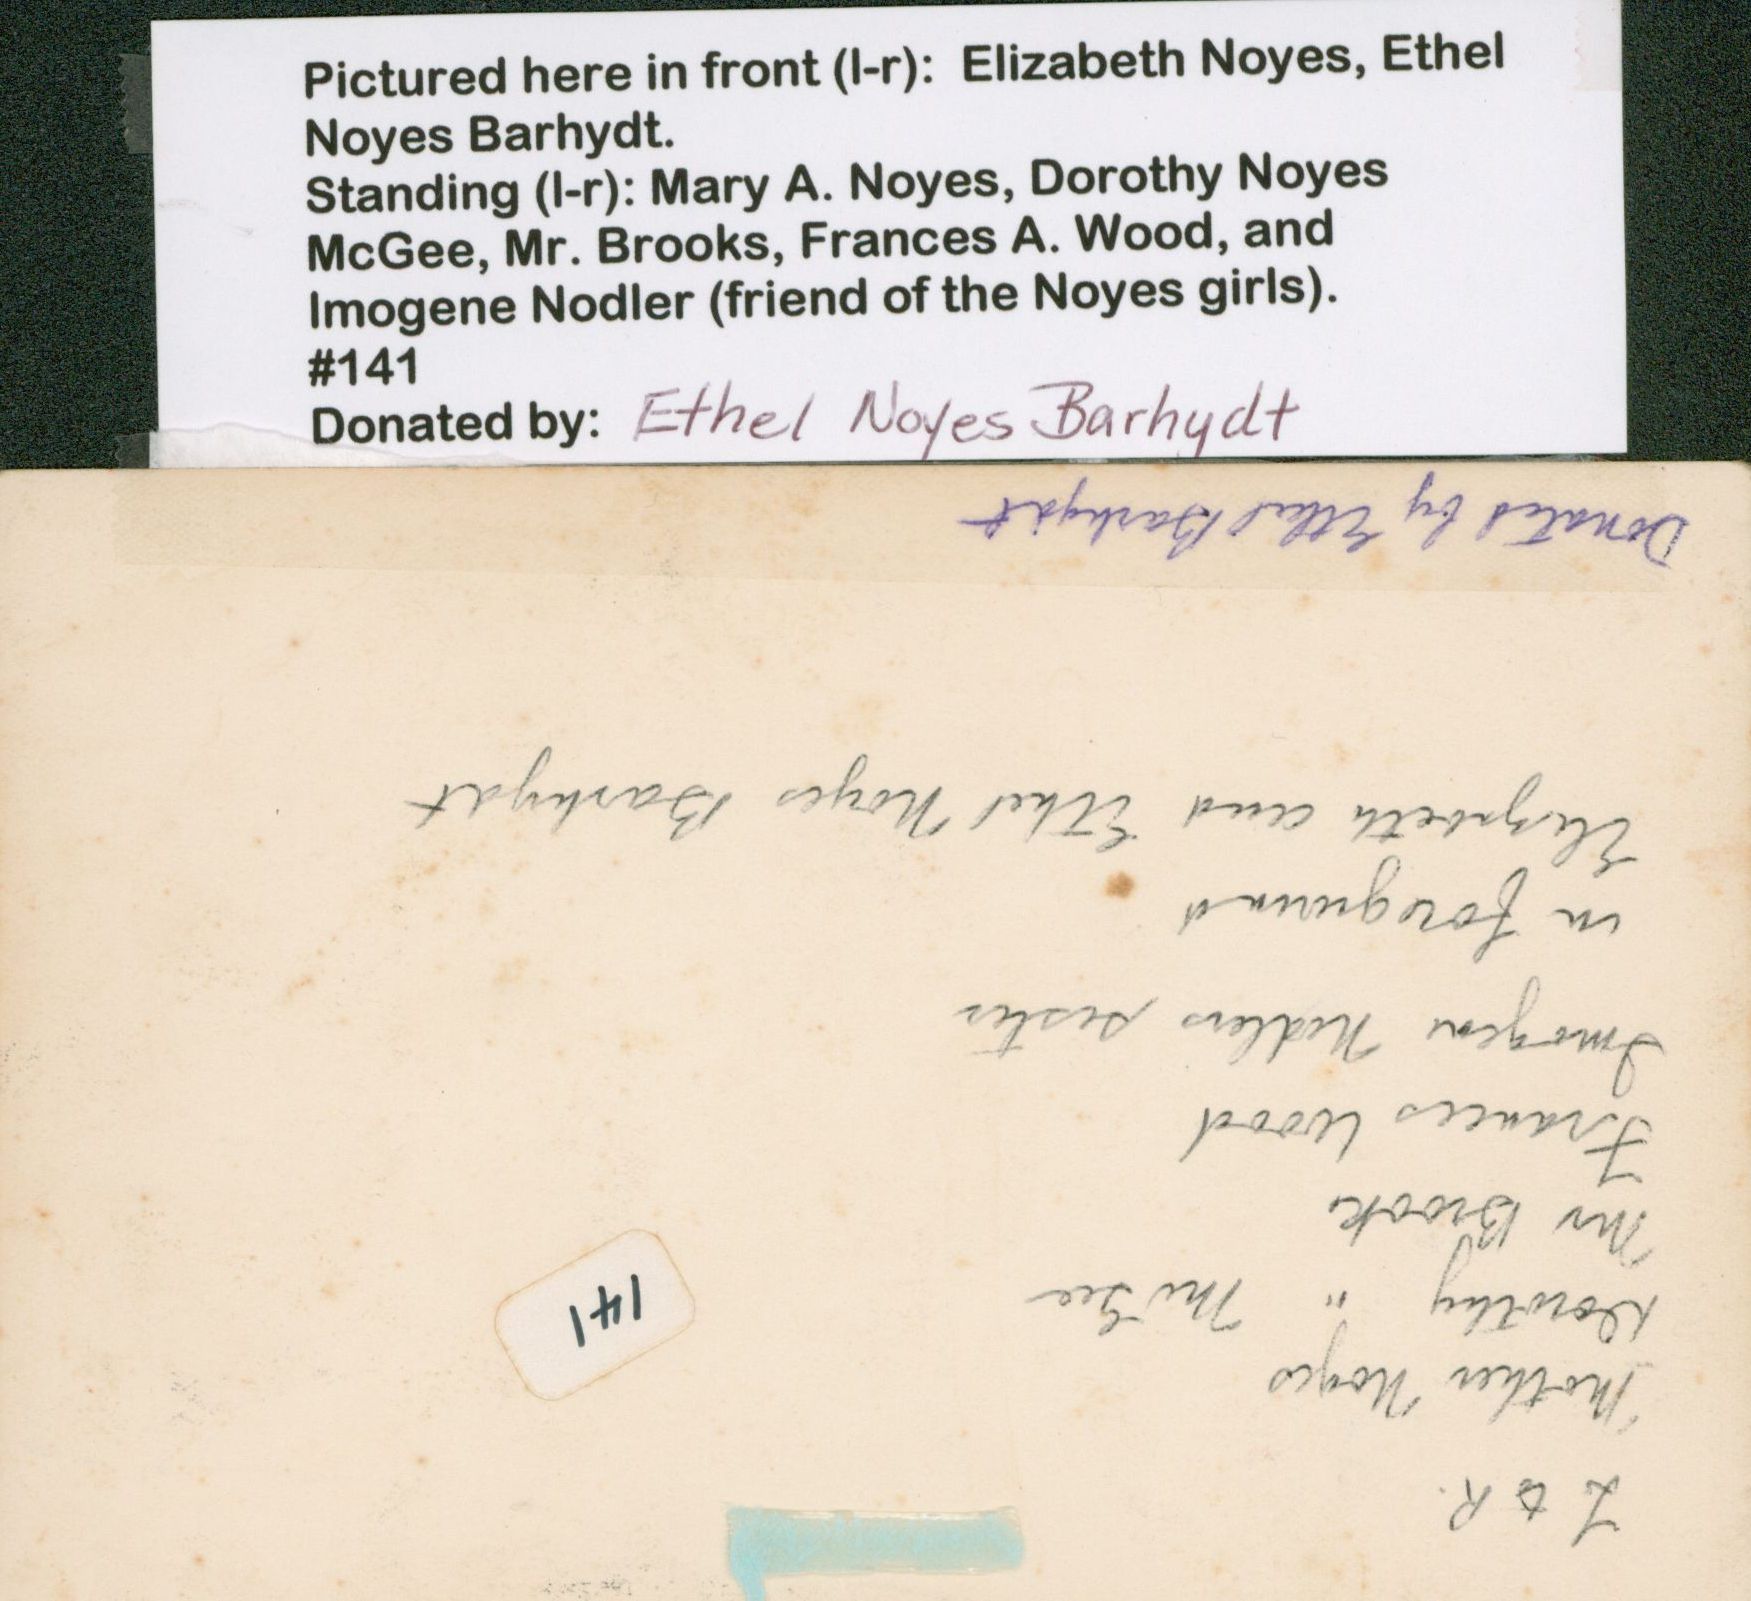 Pictured here in front (l-r): Elizabeth Noyes, Ethel
Noyes Barhydt.
Standing (l-r): Mary A. Noyes, Dorothy Noyes
McGee, Mr. Brooks, Frances A. Wood, and
Imogene Nodler (friend of the Noyes girls).
#141
Donated by: Ethel Noyes Barhydt
L to R.
Mother Noyes
Dorothy " McGee
Mr Brooks
Frances Wood
Imogene Nodlers sister
in foreground
Elizabeth and Ethel Noyes Barhydt
Donated by Ethel Barhydt
141